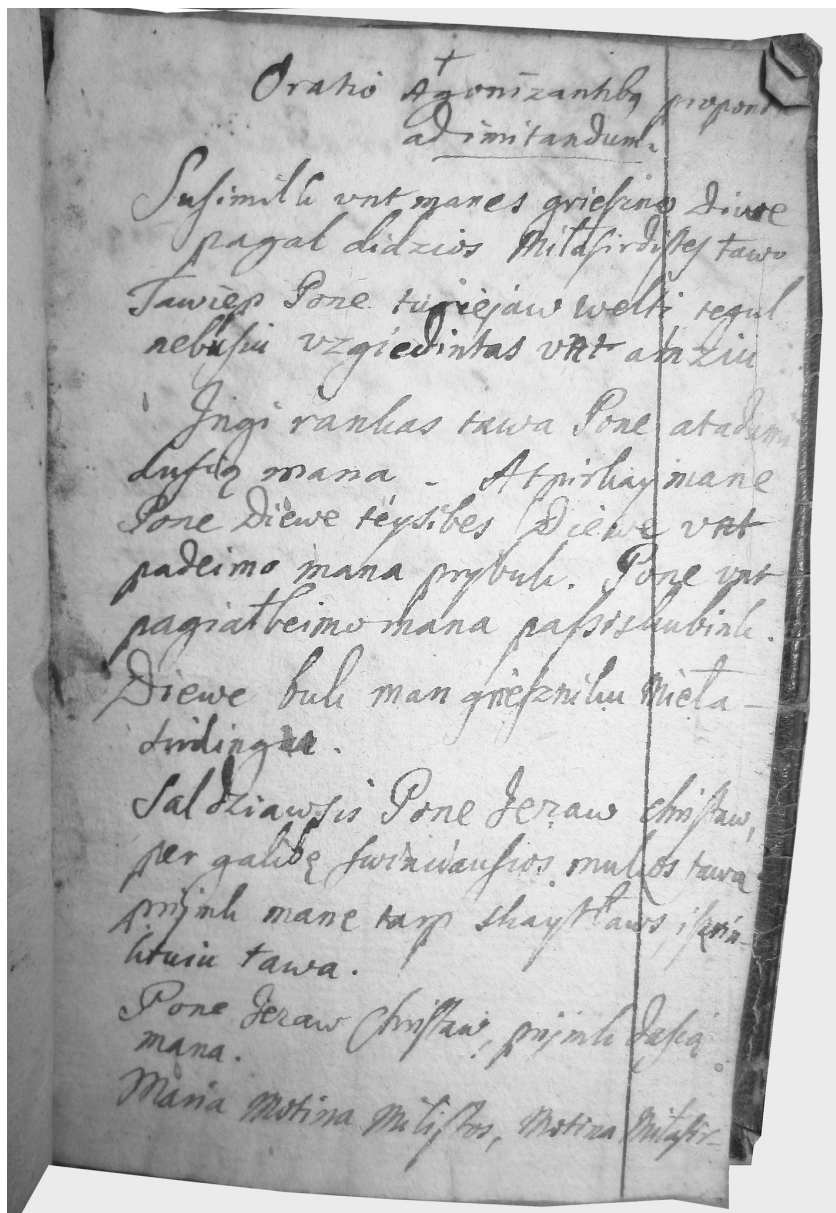 Oratio Agonizantibq propon
ad imitandum.
Susimilk vnt manes grieszno Diwe
pagal didzios Miłasirdistes tawo
Tawiep Pone turiejaw welti tegul
nebusiu vzgiedintas vnt amziu
Jngi rankas tawa Pone atadumi
dusią mana - Atpirkay mane
Pone Diewe teysibes Diewe vnt
padeimo mana prybuk. Pone vnt
pagiałbeimo mana passiskubink.
Diewe buk man griesznikui Mieła-
sirdingu.
Saldziawsis Pone Jezaw Christaw,
per galibę swinciausios mukos tawa
prijmk mane tarp skaystławs, iszrin-
ktuiu tawa.
Pone Jezaw Christaw, prijmk dusią
mana.
Maria Motina Milistos, Motina Miłasir-